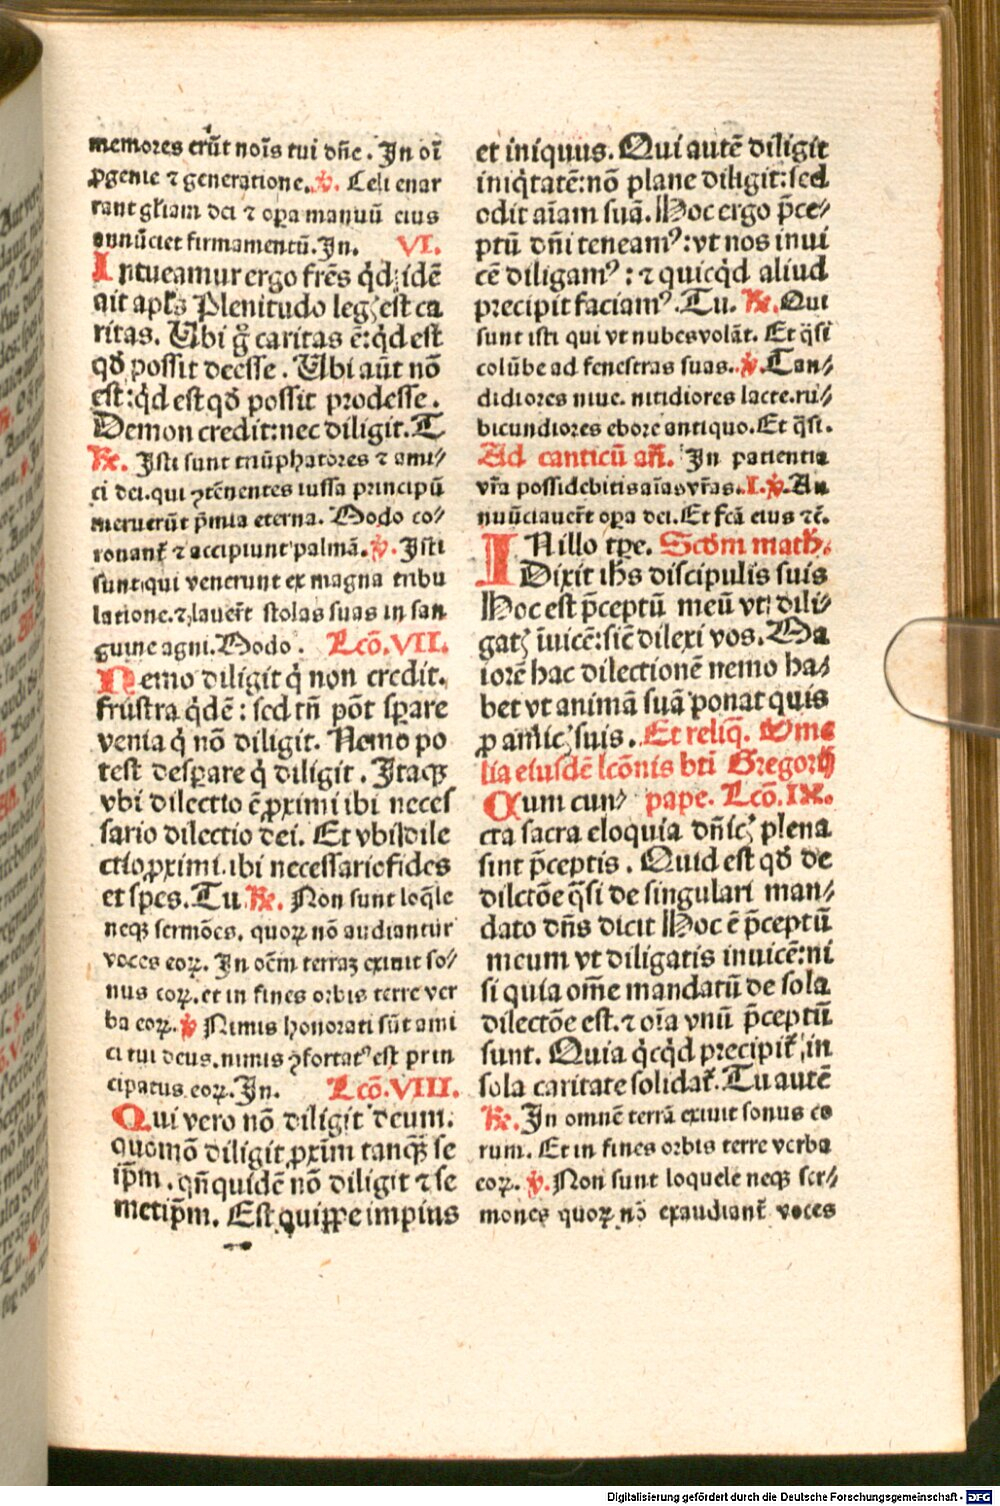 memores erūt noīs tui dn̄e. In oī
ꝓgenie ⁊ generatione. ℣. Celi enar
rant gl̄iam dei ⁊ oꝑa manuū eius
annūciet firmamentū. In. VI.
Intueamur ergo fr̄es q̇d idē
ait apl̄s Plenitudo legꝭ est ca
ritas. Ubi gͦ caritas ē: q̇d est
qđ possit deesse. Ubi aūt nō
est: q̇d est qđ possit prodesse.
Demon credit: nec diligit. T
℟. Isti sunt triūphatores ⁊ ami⸗
ci dei. qui ꝯtēnentes iussa principū
meruerūt p̄mia eterna. Modo co⸗
ronant᷑ ⁊ accipiunt palmā. ℣. Isti
sunt qui venerunt ex magna tribu
latione. ⁊ lauer̄t stolas suas in san
guine agni. Modo. Lcō. VII.
Nemo diligit q̇ non credit.
frustra q̇dē: sed tn̄ pōt sꝑare
venia q̇ nō diligit. Nemo po
test desꝑare q̇ diligit. Itaqꝫ
vbi dilectio ē ꝓximi ibi neces
sario dilectio dei. Et vbi dile
ctio ꝓximi. ibi necessario fides
et spes. Tu ℟. Non sunt loq̄le
neqꝫ sermōes. quoꝝ nō audiantur
voces eoꝝ. In oēm terraꝫ exiuit so⸗
nus eoꝝ. et in fines orbis terre ver
ba eoꝝ. ℣ Nimis honorati sūt ami
ci tui deus. nimis ꝯfortatꝰ est prin
cipatus eoꝝ. In. Lcō. VIII.
Qui vero nō diligit deum.
quomō diligit ꝓxīm tanqꝫ se
ip̄m. qn̄quidē nō diligit ⁊ se
metip̄m. Est quippe impius
et iniquus. Qui autē diligit
iniq̇tatē: nō plane diligit: sed
odit aīam suā. Hoc ergo p̄ce⸗
ptū dn̄i teneamꝰ: vt nos inui
cē diligamꝰ: ⁊ quicq̇d aliud
precipit faciamꝰ. Tu. ℟. Qui
sunt isti qui vt nubes volāt. Et q̄si
colūbe ad fenestras suas. ℣. Can⸗
didiores niue. nitidiores lacte. ru⸗
bicundiores ebore antiquo. Et q̄si.
Ad canticū an̄. In patientia
vr̄a possidebitis aīas vr̄as. I. ℣. An
nunciauer̄t oꝑa dei. Et fc̄a eius ⁊c̄.
IN illo tꝑe. Scđm math̄.
Dixit ih̄s discipulis suis
Hoc est p̄ceptū meū vt dili⸗
gatꝭ īuicē: sic̄ dilexi vos. Ma
iorē hac dilectionē nemo ha⸗
bet vt animā suā ponat quis
ꝓ amicꝭ suis. Et reliq̄. Ome
lia eiusdē lcōnis bt̄i Gregorij
Cum cun⸗ pape. Lcō. IX.
cta sacra eloquia dn̄icꝭ plena
sint p̄ceptis. Quid est qđ de
dilctōe q̄si de singulari man⸗
dato dn̄s dicit Hoc ē p̄ceptū
meum vt diligatis inuicē: ni
si quia om̄e mandatū de sola
dilectōe est. ⁊ oīa vnū p̄ceptū
sunt. Quia q̇cq̇d precipit᷑ in
sola caritate solidat᷑. Tu autē
℟. In omnē terrā exiuit sonus eo
rum. Et in fines orbis terre verba
eoꝝ. ℣. Non sunt loquele neqꝫ ser⸗
mones quoꝝ nō exaudiant᷑ voces
Digitalisierung gefördert durch die Deutsche Forschungsgemeinschaft - DFG